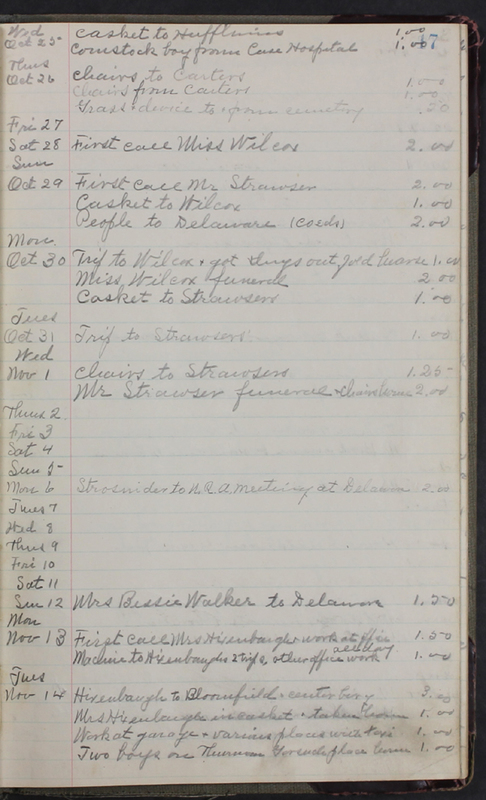 Wed
Oct 25 Casket to Hufflmires 1.00
Comstock boy from Case Hospital 1.00 17
Thus
Oct 26 Chairs to Carters 1.00
Chairs from Carters 1.00
Grass device to & from cemetery .50
Fri 27
Sat 28 First call Miss Wilcox 2.00
Sun
Oct 29 First call Mr Strawser 2.00
Casket to Wilcox 1.00
People to Delaware (Coeds) 2.00
Mon
Oct 30 Trip to Wilcox & got things out of old hearse 1.00
Miss Wilcox funeral 2.00
Casket to Strawsers 1.00
Tues
Oct 31 Trip to Strawsers 1.00
Wed
Nov 1 Chairs to Strawsers 1.25
Mr Strawser funeral & chairs home 2.00
Thurs 2
Fri 3
Sat 4
Sun 5
Mon 6 Strosnider to N.R.A. meeting at Delaware 2.00
Tues 7
Wed 8
Thus 9
Fri 10
Sat 11
Sun 12 Mrs Bessie Walker to Delaware 1.50
Mon
Nov 13 First call Mrs Hixenbaugh & work at office 1.50
Machine to Hixenbaughs 2 trips, other office work all day 1.00
Tues
Nov 14 Hixenbaugh to Bloomfield 3.00
Mrs Hixenbaugh in casket & taken home 1.00
Work at garage & various places with taxi 1.00
Two boys on Thurman place home 1.00